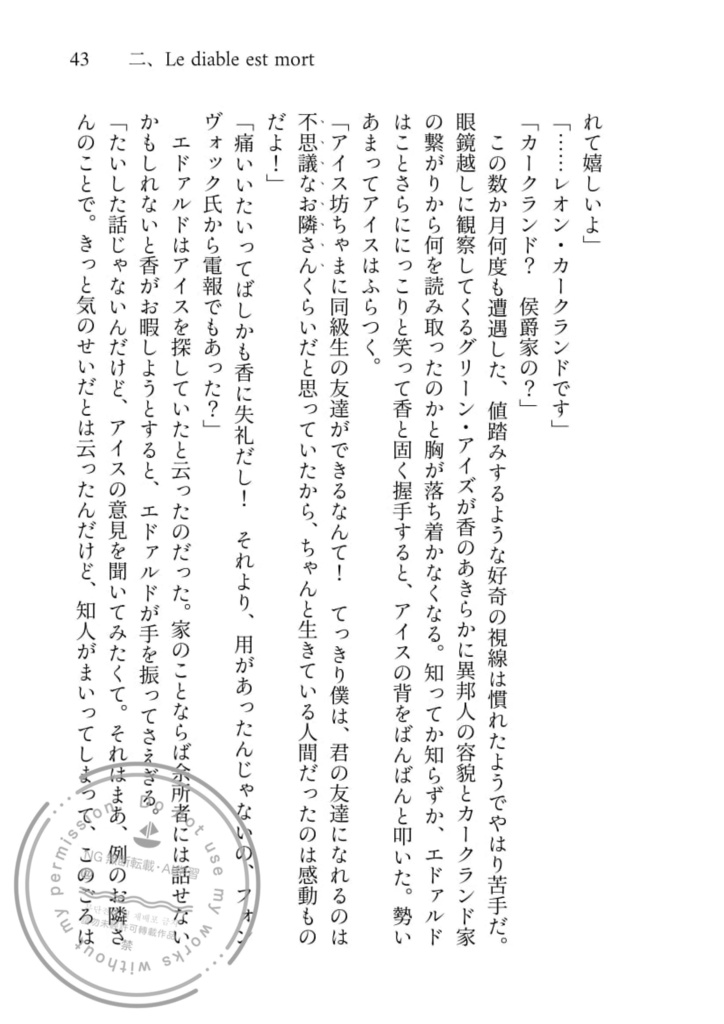 43　二、Le diable est mort
れて嬉しいよ」
「……レオン・カークランドです」
「カークランド？　侯爵家の？」
　この数か月何度も遭遇した、値踏みするような好奇の視線は慣れたようでやはり苦手だ。
眼鏡越しに観察してくるグリーン・アイズが香のあきらかに異邦人の容貌とカークランド家
の繋がりから何を読み取ったのかと胸が落ち着かなくなる。知ってか知らずか、エドァルド
はことさらににっこりと笑って香と固く握手すると、アイスの背をばんばんと叩いた。勢い
あまってアイスはふらつく。
「アイス坊ちゃまに同級生の友達ができるなんて！　てっきり僕は、君の友達になれるのは
不思議なお隣さんくらいだと思っていたから、ちゃんと生きている人間だったのは感動もの
だよ！」
「痛いいたいってばしかも香に失礼だし！　それより、用があったんじゃないの、フォン
ヴォック氏から電報でもあった？」
　エドァルドはアイスを探していたと云ったのだった。家のことならば余所者には話せない
かもしれないと香がお暇しようとすると、エドァルドが手を振ってさえぎる。
「たいした話じゃないんだけど、アイスの意見を聞いてみたくて。それはまあ、例のお隣さ
んのことで。きっと気のせいだとは云ったんだけど、知人がまいってしまって、このごろは
Do not use my works without my permission
NG 無断転載・AI学習
禁